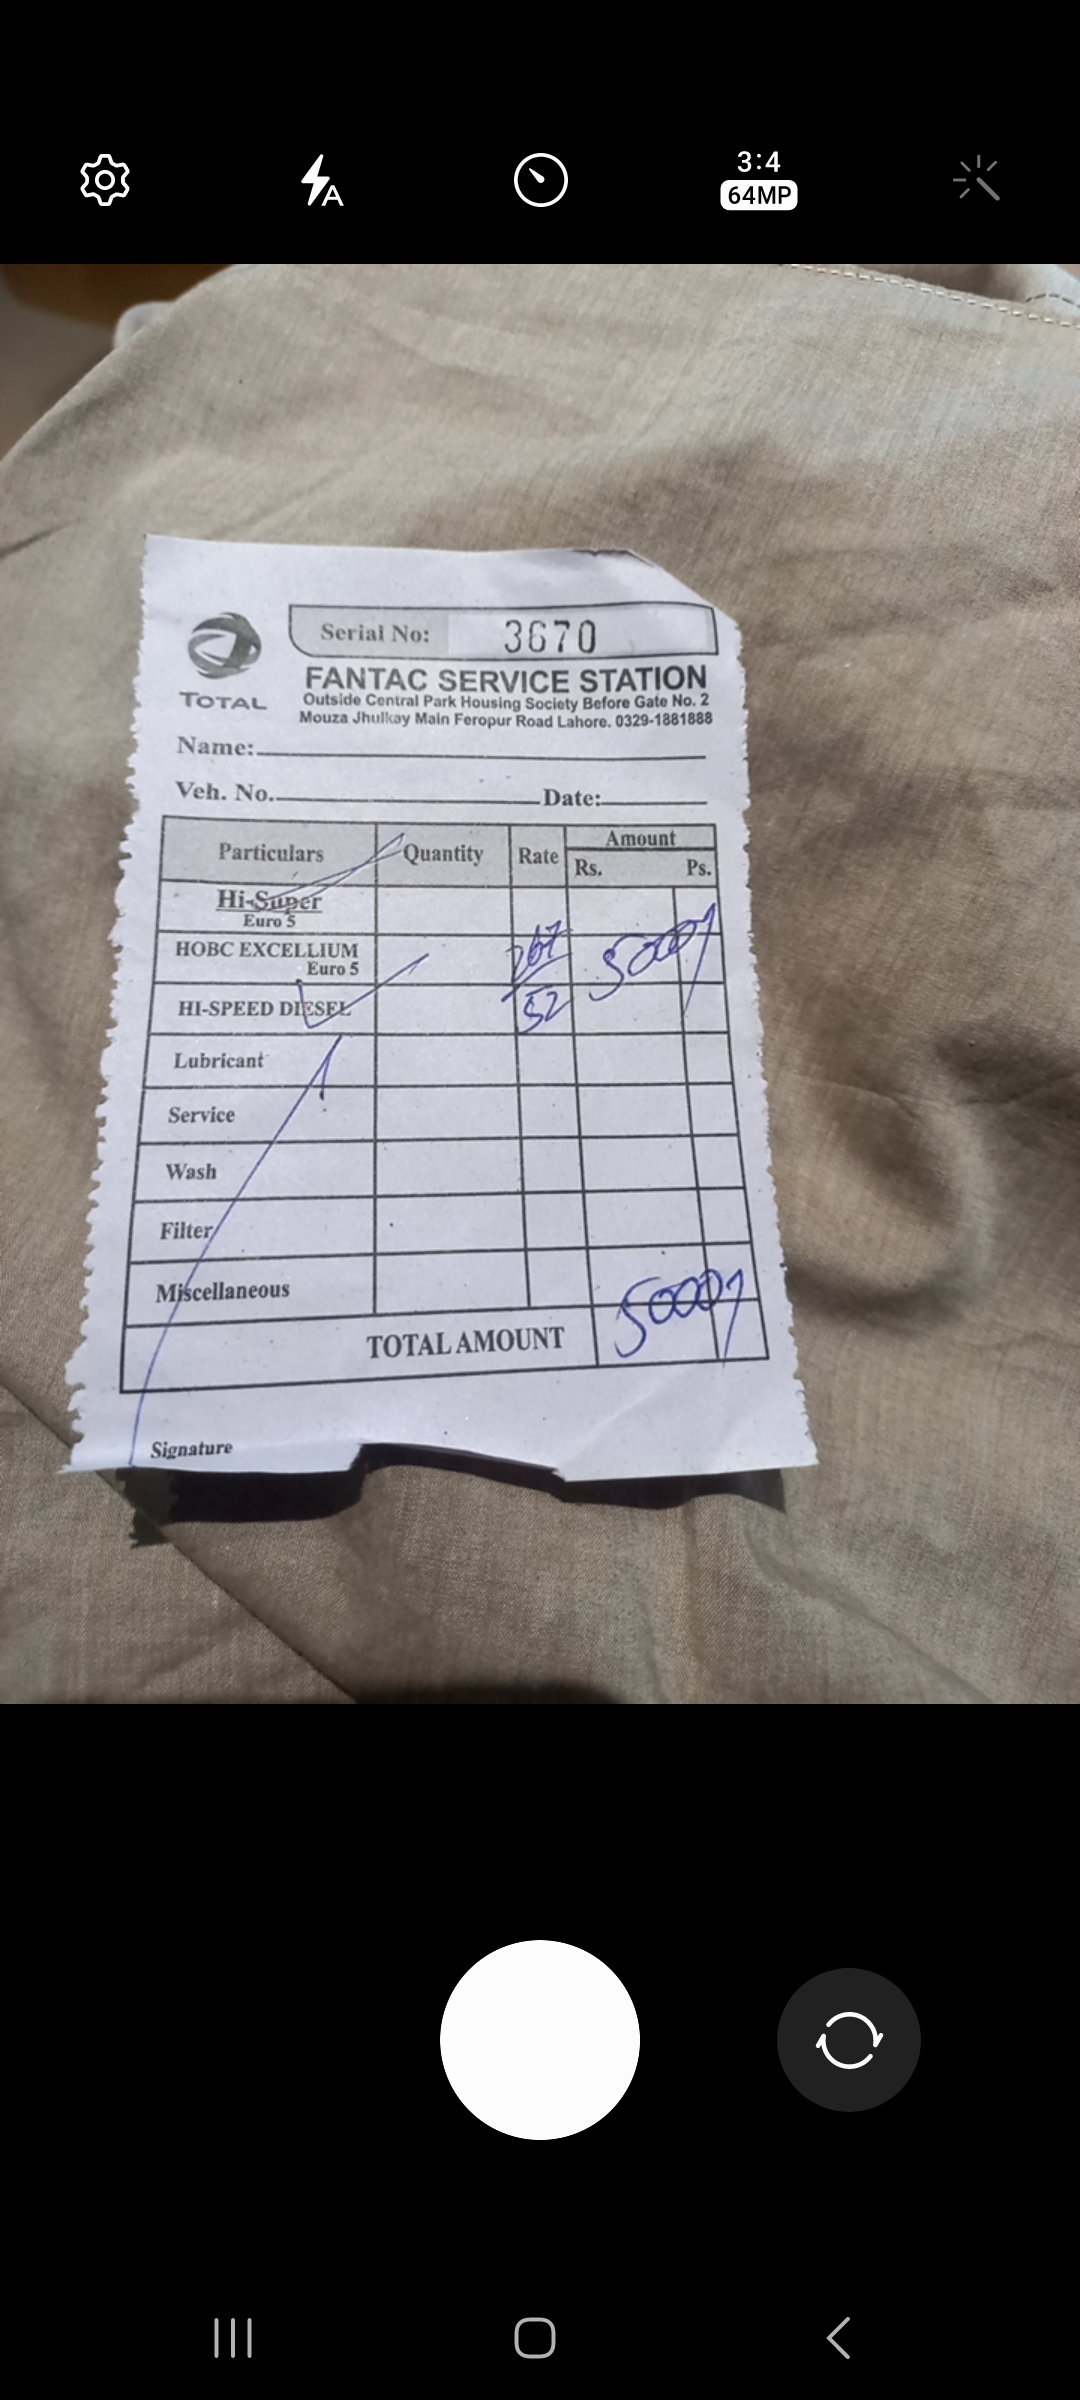 3:4
64MP
Serial No: 3670
TOTAL
FANTAC SERVICE STATION
Outside Central Park Housing Society Before Gate No. 2
Mouza Jhulkay Main Feropur Road Lahore. 0329-1881888
Name:
Veh. No. Date:
Particulars Quantity Rate Amount
Rs. Ps.
Hi-Super
Euro 5
HOBC EXCELLIUM
Euro 5
267
5000/
HI-SPEED DIESEL
52
Lubricant
Service
Wash
Filter
Miscellaneous
TOTAL AMOUNT 5000/
Signature